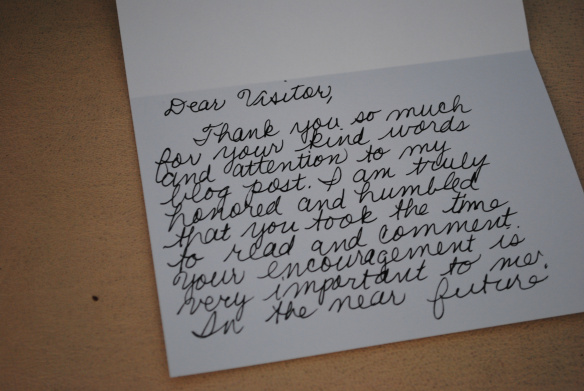 Dear Visitor,
Thank you so much
for your kind words
and attention to my
blog post. I am truly
honored and humbled
that you took the time
to read and comment.
Your encouragement is
very important to me.
In the near future